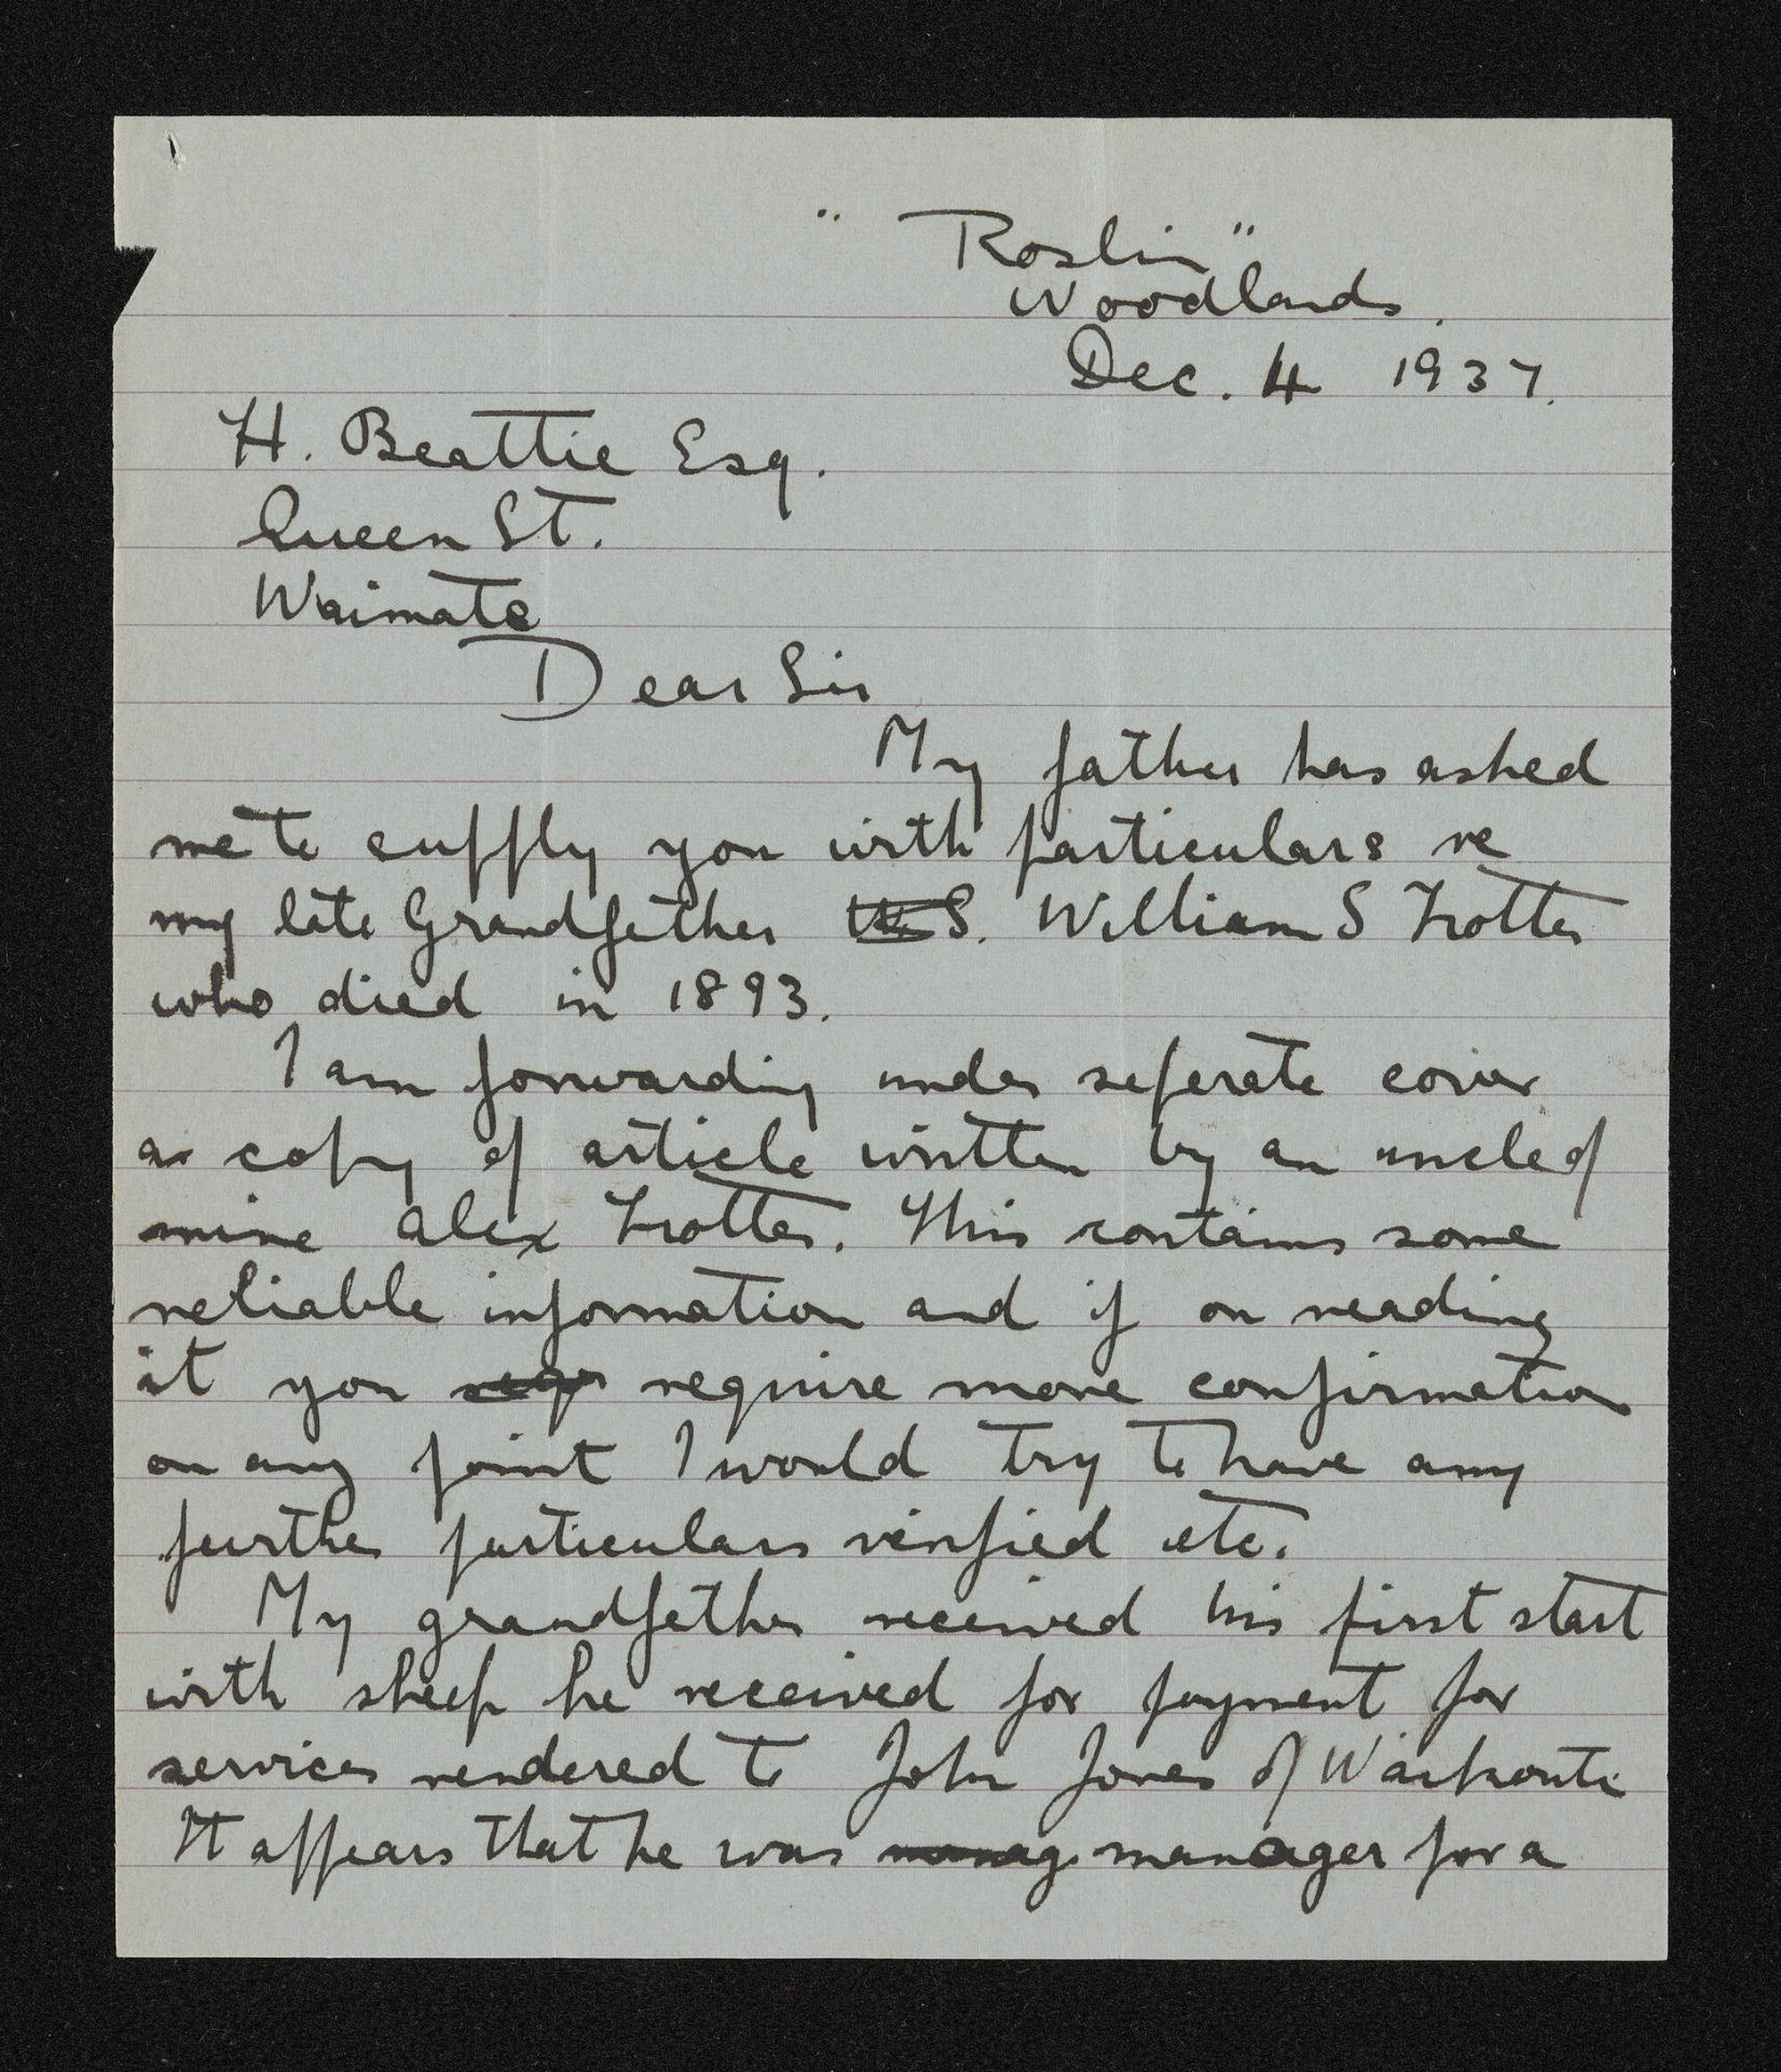 "Roslin"
Woodlands.
Dec. 4 1937.
H. Beattie Esq.
Queen St.
Waimate
Dear Sir
My father has asked
me to supply you with particulars re
my late Grandfather W. S. William S Trotter
who died in 1893.
I am forwarding under seperate cover
a copy of article written by an uncle of
mine Alex Trotter. This contains some
reliable information and if on reading
it you requ require more confirmation
on any point I would try to have any
further particulars verified etc.
My grandfather received his first start
with sheep he received for payment for
services rendered to John Jones of Waikouti
It appears that he was manag manager for a